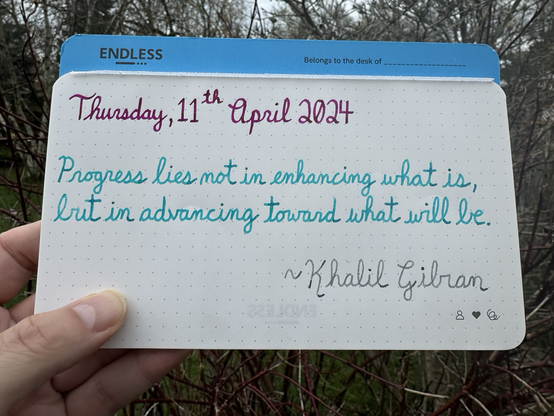 ENDLESS
Belongs to the desk of ____________________
Thursday, 11th April 2024
Progress lies not in enhancing what is,
but in advancing toward what will be.
~Khalil Gibran
ENDLESS